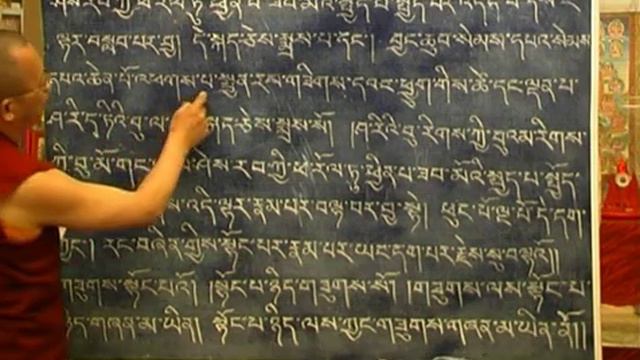 ཀྱི་ཕ་རོལ་ཏུ་ཕྱིན་པ་ཟབ་མོའི་སྤྱད་པ་སྤྱོད་པར་
ལྟར་བསླབ་པར་བྱ། དེ་སྐད་ཅེས་སྨྲས་པ་དང་། བྱང་ཆུབ་སེམས་དཔའ་སེམས་
དཔའ་ཆེན་པོ་འཕགས་པ་སྤྱན་རས་གཟིགས་དབང་ཕྱུག་གིས་ཚེ་དང་ལྡན་པ་
ཤ་རི་དྭ་ཏིའི་བུ་ལ་ སྐད་ཅེས་སྨྲས་སོ། །ཤ་རིའི་བུ་རིགས་ཀྱི་བུའམ་རིགས་
ཀྱི་བུ་མོ་གང་ ཤེས་རབ་ཀྱི་ཕ་རོལ་ཏུ་ཕྱིན་པ་ཟབ་མོའི་སྤྱད་པ་སྤྱོད་
འདི་ལྟར་རྣམ་པར་བལྟ་བར་བྱ་སྟེ། ཕུང་པོ་ལྔ་པོ་དེ་དག་
ཀྱང་། རང་བཞིན་གྱིས་སྟོང་པར་རྣམ་པར་ཡང་དག་པར་རྗེས་སུ་བལྟའོ།།
གཟུགས་སྟོང་པའོ། །སྟོང་པ་ཉིད་གཟུགས་སོ། །གཟུགས་ལས་སྟོང་པ་
ཉིད་གཞན་མ་ཡིན། སྟོང་པ་ཉིད་ལས་ཀྱང་གཟུགས་གཞན་མ་ཡིན་ནོ།།